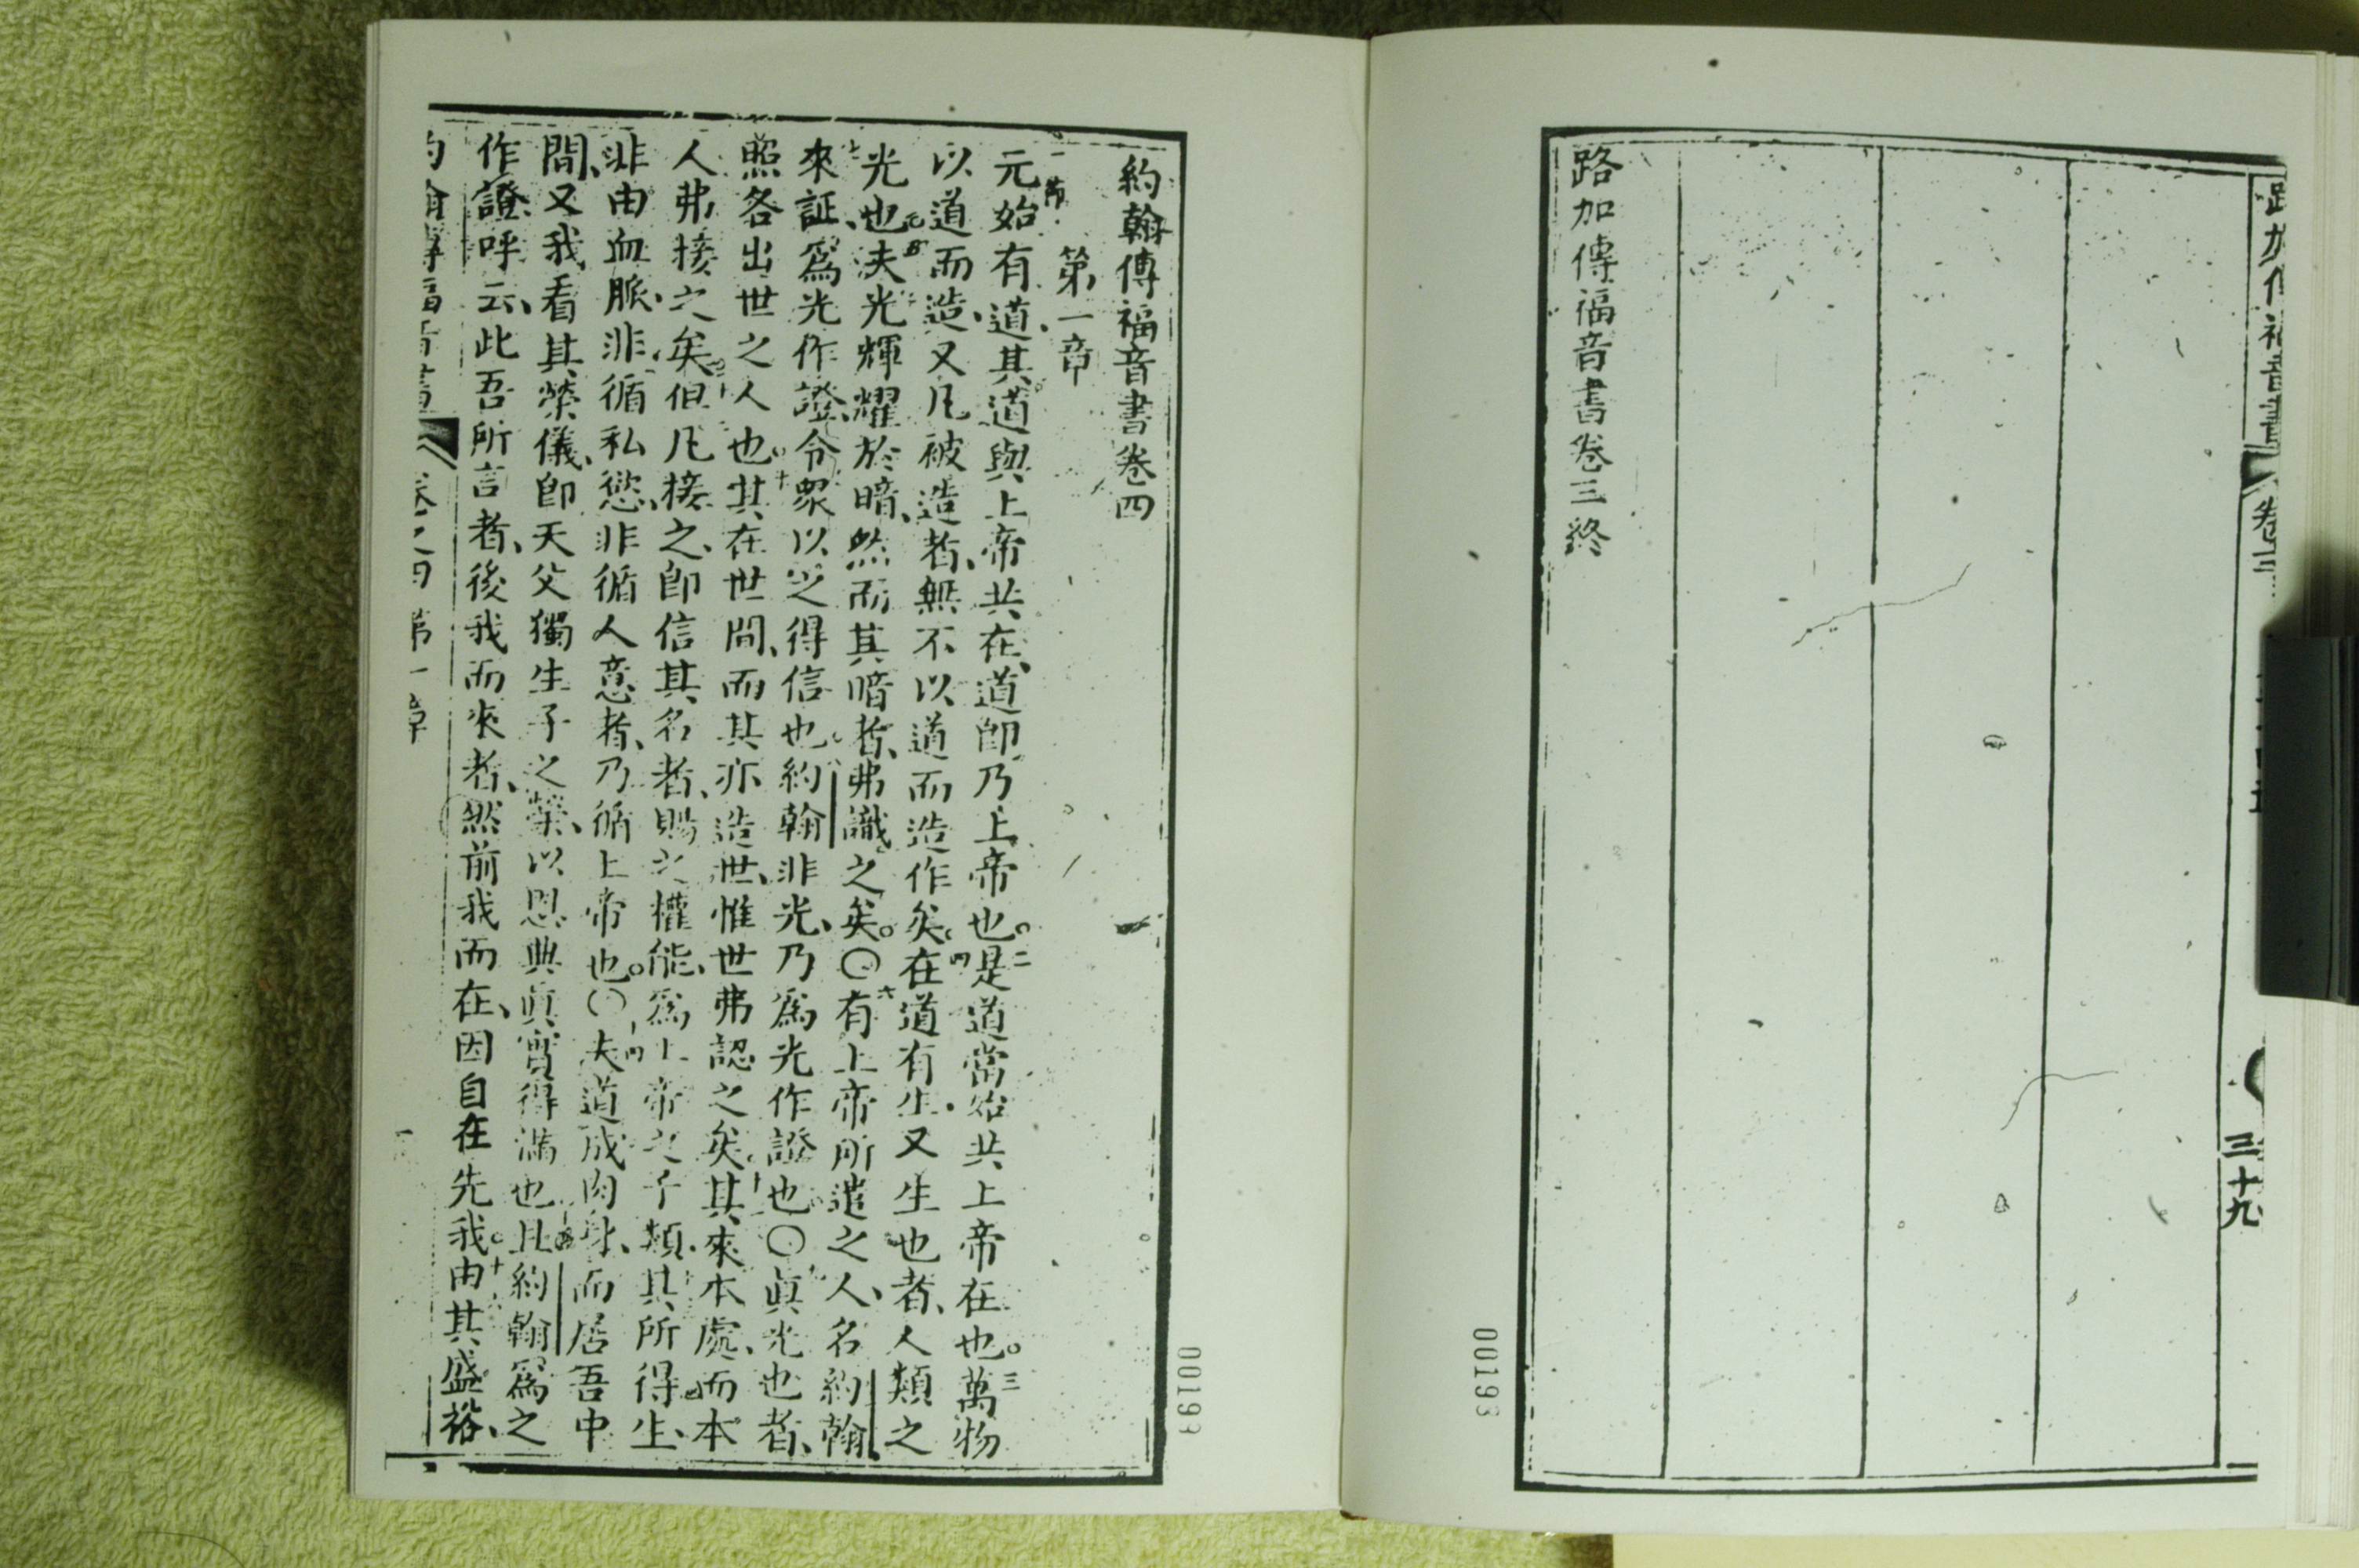 路加傳福音書
卷三
三十九
路加傳福音書卷三終
00193
約翰傳福音書卷四
第一章
一節
元始有道、其道與上帝共在、道即乃上帝也。二是道當始共上帝在也。三萬物
以道而造、又凡被造者、無不以道而造作矣。四在道有生、又生也者、人類之
光也、五夫光輝耀於暗、然而其暗者、弗識之矣。〇六有上帝所遣之人、名約翰、
來証、爲光作證、令衆以之得信也約翰非光、乃爲光作證也〇眞光也者、
照各出世之人也。十其在世間、而其亦造世、惟世弗認之矣其來本處、而本
人弗接之矣但凡接之、即信其名者、賜之權能、爲上帝之子類、其所得生、
非由血脈、非循私慾、非循人意者、乃循上帝也。〇夫道成肉身、而居吾中
間、又我看其榮儀、即天父獨生子之榮、以恩典眞實得滿也且約翰爲之
作證、呼云、此吾所言者、後我而來者、然前我而在、因自在先我。十六由其盛裕、
約翰傳福音書
卷之四 第一章
00193